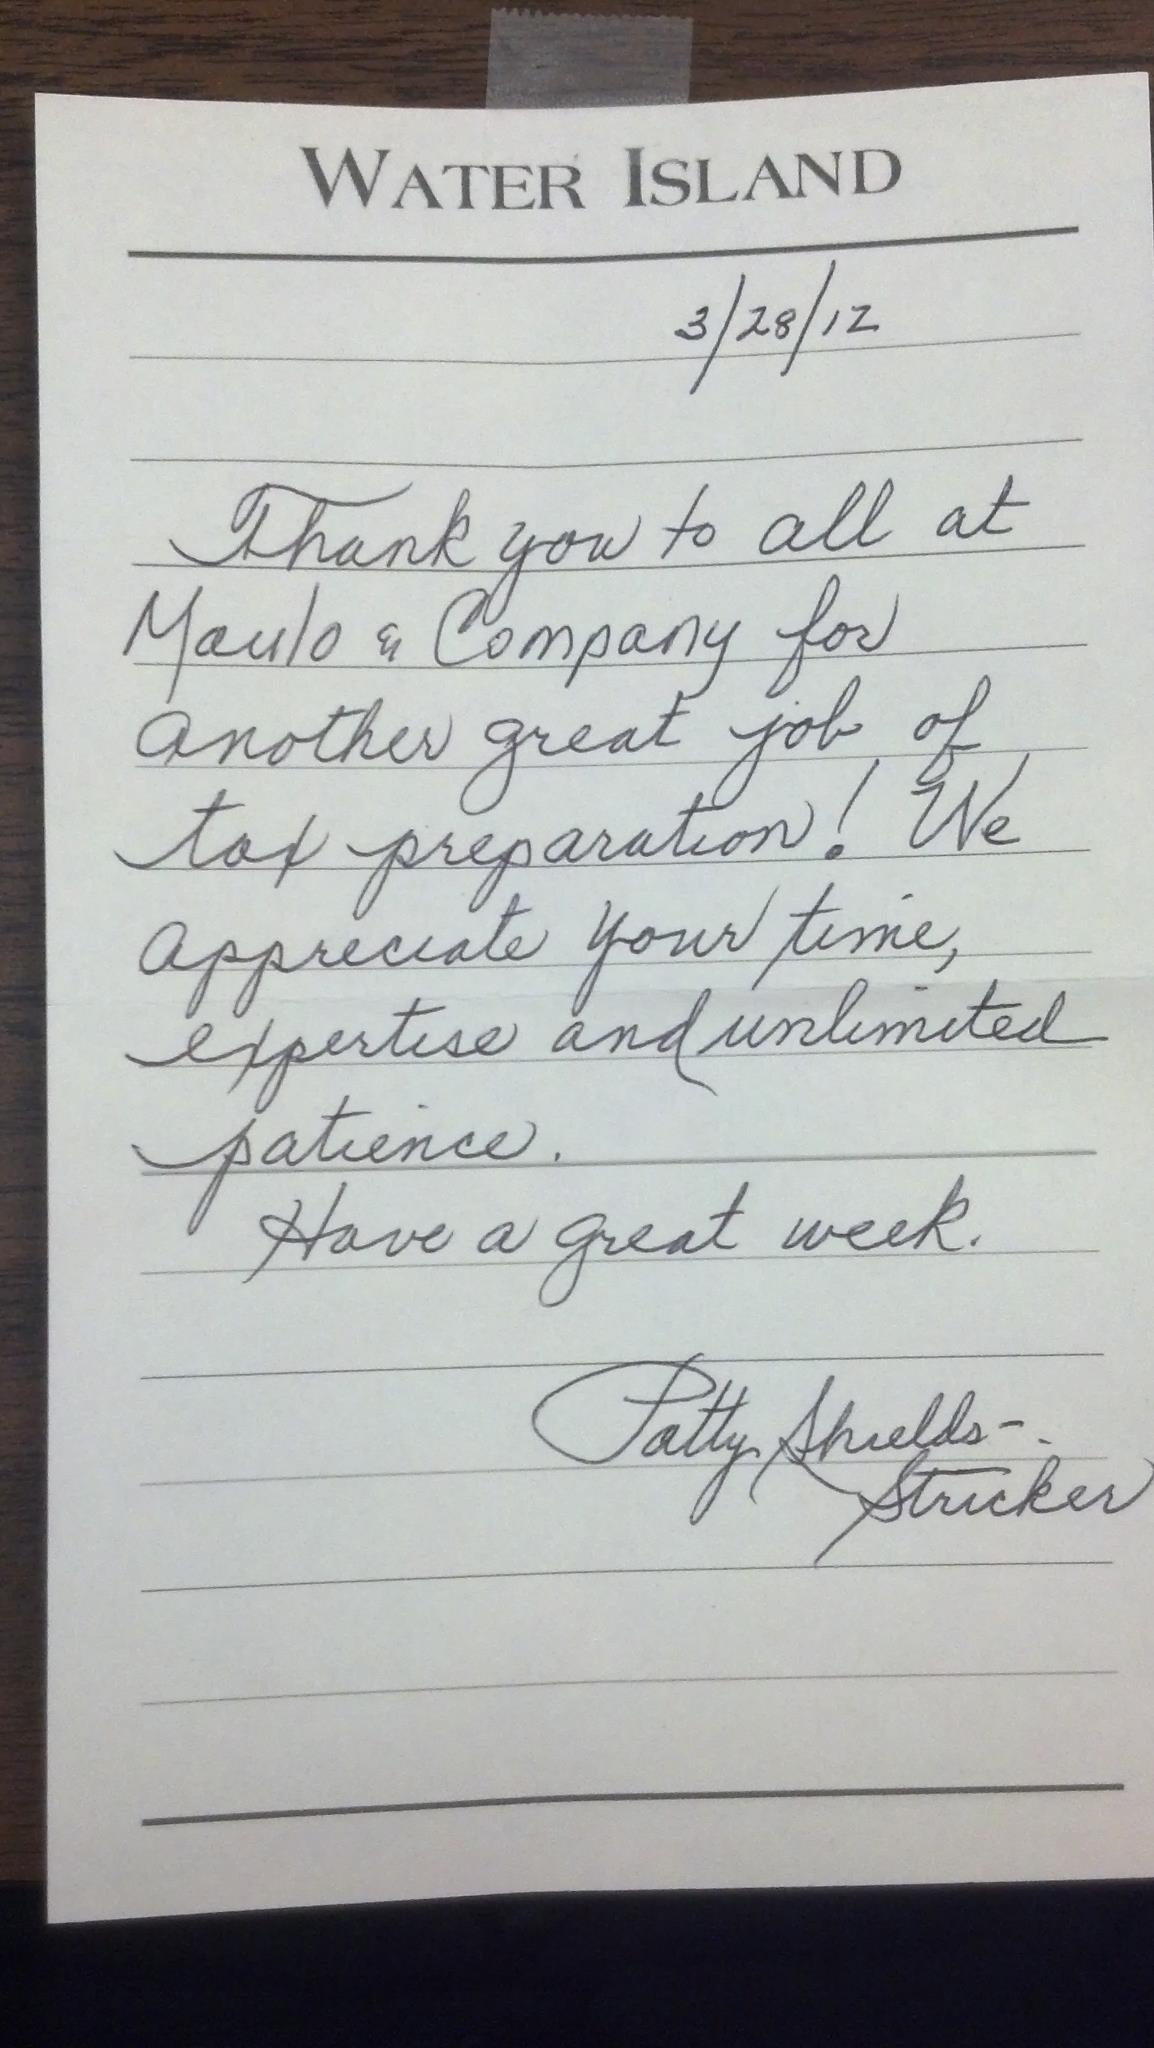 WATER ISLAND
3/28/12
Thank you to all at
Maulo & Company for
another great job of
tax preparation! We
appreciate your time,
expertise and unlimited
patience.
Have a great week.
Patty Shields-
Stricker